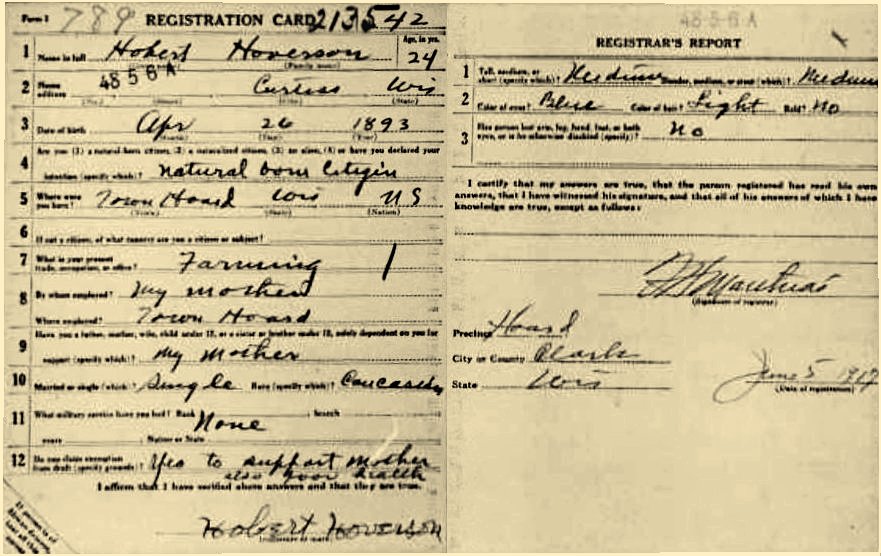 Form 1 789 REGISTRATION CARD 213542
1 Name in full Hobert Hoverson Age, in yrs. 24
(Family name)
2 Home address 4856A Curtiss Wis
(No.) (Street) (City) (State)
3 Date of birth Apr 26 1893
(Month) (Day) (Year)
4 Are you (1) a natural-born citizen, (2) a naturalized citizen, (3) an alien, (4) or have you declared your
intention (specify which)? Natural born Citizin
5 Where were you born? Town Hoard Wis US
(Town) (State) (Nation)
6 If not a citizen, of what country are you a citizen or subject?
7 What is your present trade, occupation, or office? Farming 1
8 By whom employed? My mother
Where employed? Town Hoard
9 Have you a father, mother, wife, child under 12, or a sister or brother under 12, solely dependent on you for
support (specify which)? My Mother
10 Married or single (which)? Single Race (specify which)? Caucasian
11 What military service have you had? Rank None , branch
years , Nation or State
12 Do you claim exemption from draft (specify grounds)? Yes to support mother
also poor health
I affirm that I have verified above answers and that they are true.
Hobert Hoverson
(Signature or mark)
If person is of African descent,
4856A
REGISTRAR'S REPORT
1 Tall, medium, or short (specify which)? Medium Slender, medium, or stout (which)? Medium
2 Color of eyes? Blue Color of hair? Light Bald? No
3 Has person lost arm, leg, hand, foot, or both eyes, or is he otherwise disabled (specify)? No
I certify that my answers are true, that the person registered has read his own
answers, that I have witnessed his signature, and that all of his answers of which I have
knowledge are true, except as follows:
(Signature of registrar)
Precinct Hoard
City or County Clark
State Wis June 5 1917
(Date of registration)